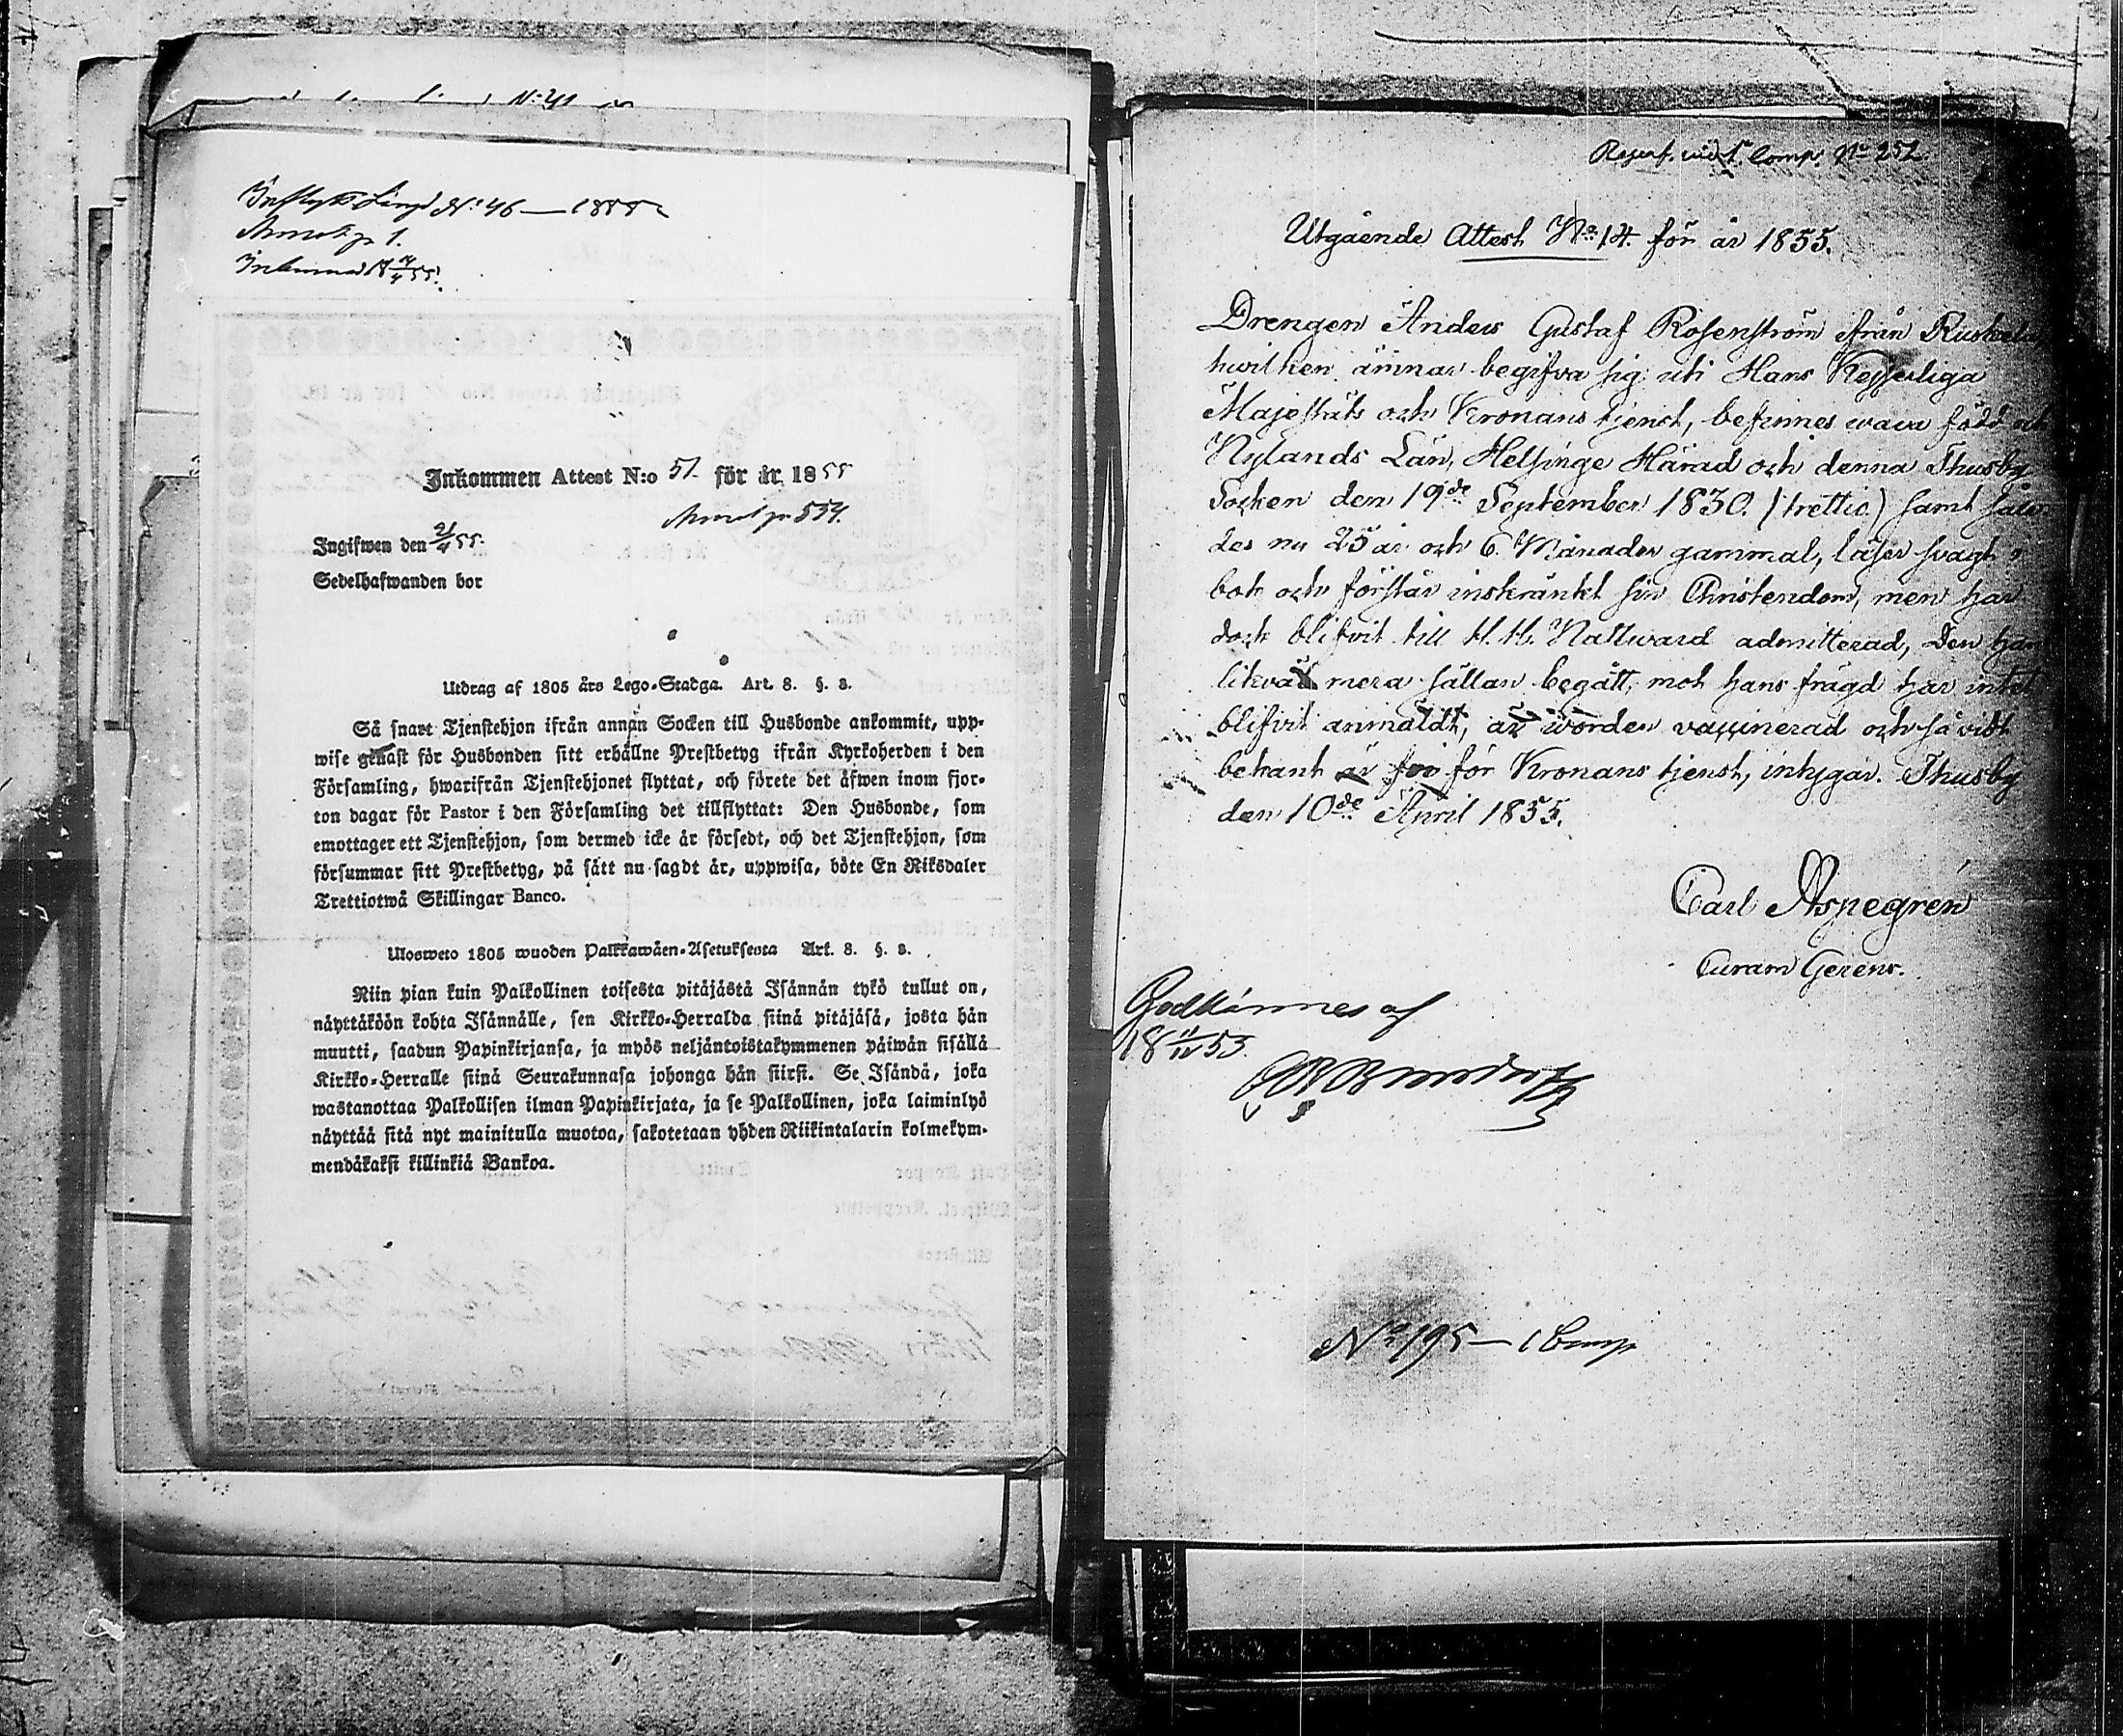 N:o 41
Inflytt. Längd N:o 46 — 1855
pag 1.
Inkommen Attest N:o 51. för år 1855
pag 554.
Ingifwen den 21/4 55.
Sedelhafwanden bor
Utdrag af 1805 års Lego-Stadga. Art. 8. §. 3.
Så snart Tjenstehjon ifrån annan Socken till Husbonde ankommit, upp-
wise genast för Husbonden sitt erhållne Prestbetyg ifrån Kyrkoherden i den
Församling, hwarifrån Tjenstehjonet flyttat, och förete det äfwen inom fjor-
ton dagar för Pastor i den Församling det tillflyttat: Den Husbonde, som
emottager ett Tjenstehjon, som dermed icke är försedt, och det Tjenstehjon, som
försummar sitt Prestbetyg, på sätt nu sagdt är, uppwisa, böte En Riksdaler
Trettiotwå Skillingar Banco.
Uloswето 1805 wuoden Palkkawäen-Asetuksesta Art. 8. §. 3.
Niin pian kuin Palkollinen toisesta pitäjästä Isännän tykö tullut on,
näyttäköön kohta Isännälle, sen Kirkko-Herralda siinä pitäjäsä, josta hän
muutti, saadun Papinkirjansa, ja myös neljäntoistakymmenen päiwän sisällä
Kirkko-Herralle siinä Seurakunnasa johonga hän siirsi. Se Isändä, joka
wastanottaa Palkollisen ilman Papinkirjata, ja se Palkollinen, joka laiminlyö
näyttää sitä nyt mainitulla muotoa, sakotetaan yhden Riikintalarin kolmekym-
mendäkaksi killinkiä Bankoa.
Reserf. vid 1. Comp. No 252
Utgående Attest No 14. för år 1855.
Drengen Anders Gustaf Rosenström ifrån Ruskela
hvilken ämnar begifva sig uti Hans Kejserliga
Majestäts och Kronans tjenst, befinnes vara född
Nylands Län, Helsinge Härad och denna Thusby
Socken den 19de September 1830. (trettio) samt såle
des nu 25 år och 6 Månader gammal, läser svagt
bok och förstår inskränkt sin Christendom, men har
dock blifvit till H. H. Nattward admitterad, den han
likväl mera sällan begått; mot hans frägd har intet
blifvit anmäldt, är worden vaccinerad och så vidt
bekant är fri för Kronans tjenst, intygar. Thusby
den 10de April 1855.
Carl Aspegrén
Curam Gerens.
Godkännes af
18 11/IV 55.
No 195 — 1 Comp